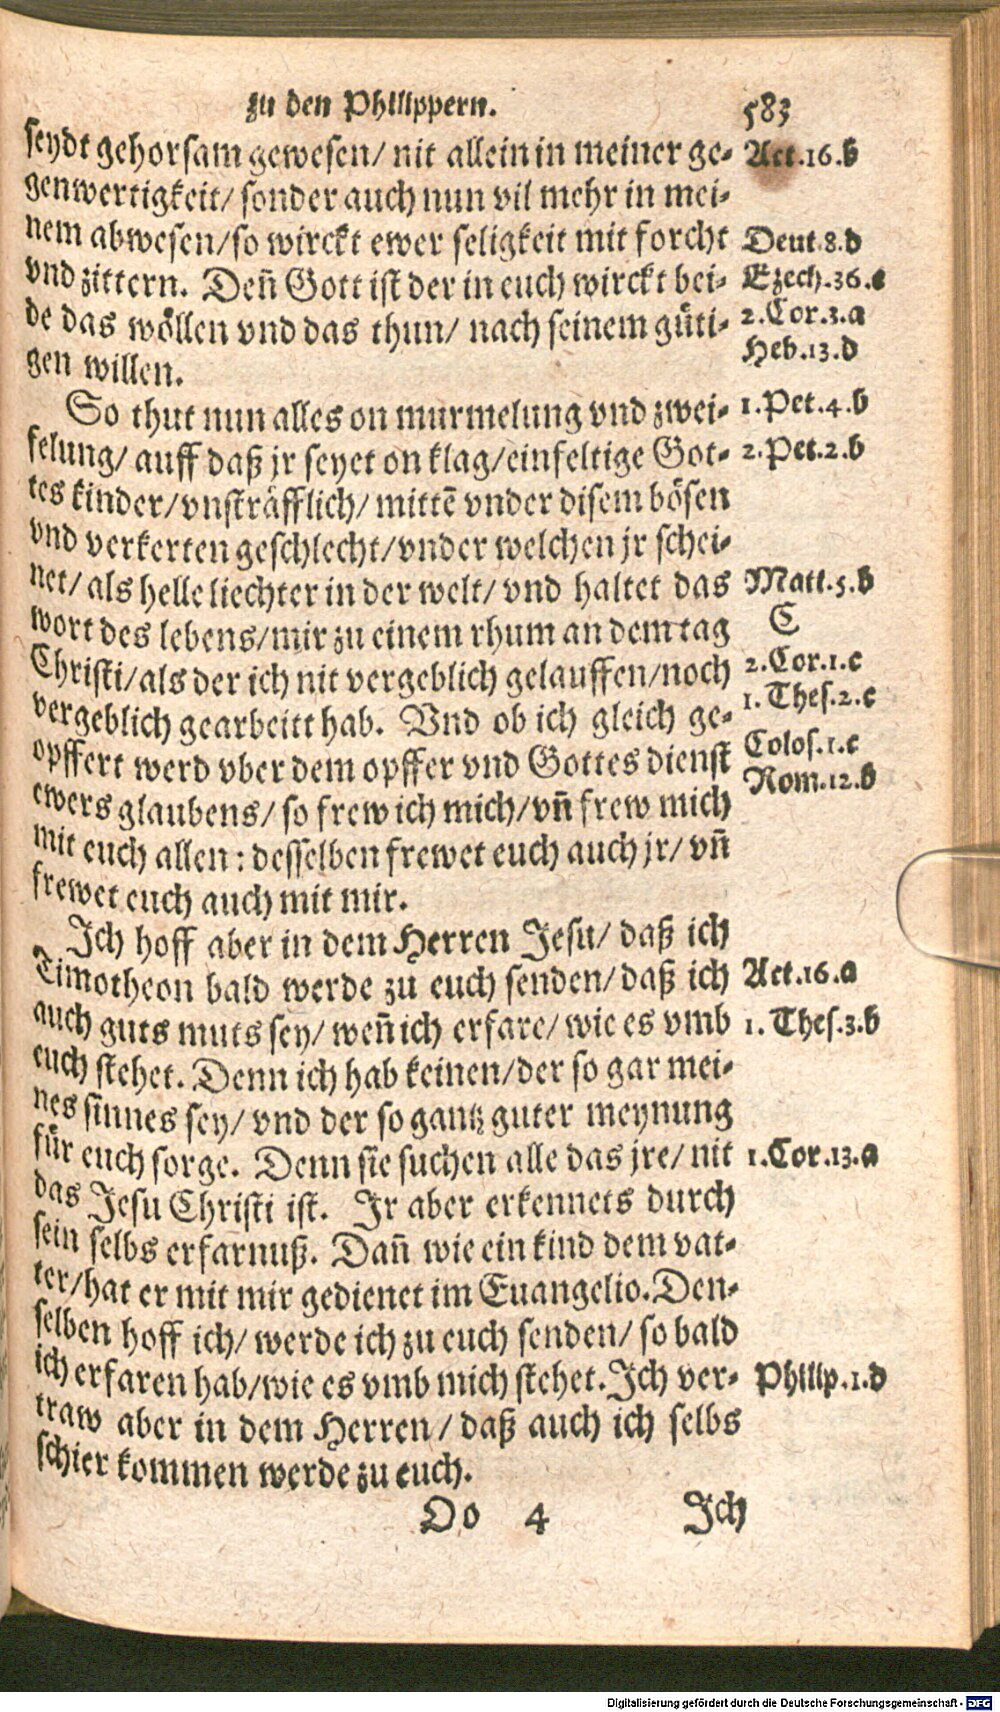 zu den Philippern. 583
seydt gehorsam gewesen/ nit allein in meiner ge- Act.16.b
genwertigkeit/ sonder auch nun vil mehr in mei-
nem abwesen/so wirckt ewer seligkeit mit forcht Deut.8.d
vnd zittern. Deñ Gott ist der in euch wirckt bei- Ezech.36.e
de das wöllen vnd das thun/ nach seinem güti- 2.Cor.3.a
gen willen. Heb.13.d
So thut nun alles on murmelung vnd zwei- 1.Pet.4.b
felung/ auff daß jr seyet on klag/einfeltige Got- 2.Pet.2.b
tes kinder/vnsträfflich/ mittẽ vnder disem bösen
vnd verkerten geschlecht/vnder welchen jr schei-
net/ als helle liechter in der welt/ vnd haltet das Matt.5.b
wort des lebens/mir zu einem rhum an dem tag C
Christi/als der ich nit vergeblich gelauffen/noch 2.Cor.1.c
vergeblich gearbeitt hab. Vnd ob ich gleich ge- 1.Thes.2.c
opffert werd vber dem opffer vnd Gottes dienst Colos.1.c
ewers glaubens/ so frew ich mich/vñ frew mich Rom.12.b
mit euch allen: desselben frewet euch auch jr/ vñ
frewet euch auch mit mir.
Ich hoff aber in dem Herren Jesu/ daß ich
Timotheon bald werde zu euch senden/ daß ich Act.16.a
auch guts muts sey/ weñ ich erfare/ wie es vmb 1.Thes.3.b
euch stehet. Denn ich hab keinen/der so gar mei-
nes sinnes sey/ vnd der so gantz guter meynung
für euch sorge. Denn sie suchen alle das jre/ nit 1.Cor.13.a
das Jesu Christi ist. Ir aber erkennets durch
sein selbs erfarnuß. Dañ wie ein kind dem vat-
ter/hat er mit mir gedienet im Euangelio. Den-
selben hoff ich/ werde ich zu euch senden/ so bald
ich erfaren hab/wie es vmb mich stehet. Ich ver- Philip.1.d
traw aber in dem Herren/ daß auch ich selbs
schier kommen werde zu euch.
Oo 4 Ich
Digitalisierung gefördert durch die Deutsche Forschungsgemeinschaft - DFG